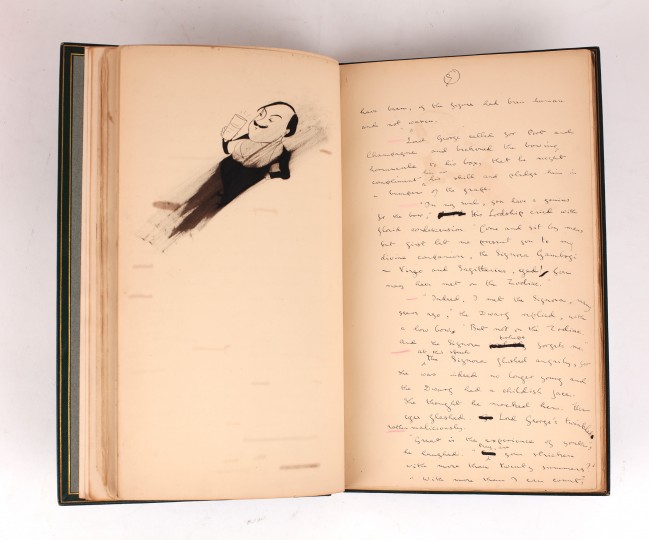 5
have been, if the figure had been human
and not waxen.
"Lord George called for Port and
Champagne and beckoned the bowing
homuncule to his box, that he might
compliment his skill and pledge him in
a bumper of the grape.
"On my soul, you have a genius
for the bow," his Lordship cried with
florid condescension. "Come and sit by me;
but first let me present you to my
divine companion, the Signora Gambogi
— Virgo and Sagittarius, egad! You
may have met on the Zodiac."
"Indeed, I met the Signora many
years ago," the Dwarf replied, with
a low bow. "But not on the Zodiac,
and the Signora perhaps forgets me."
at this speech
The Signora flushed angrily, for
she was indeed no longer young and
the Dwarf had a childish face.
She thought he mocked her. Her
eyes flashed. Lord George's twinkled
rather maliciously.
"Great is the experience of youth,"
he laughed. "Pray, are your stricken
with more than twenty summers?"
"With more than I can count,"